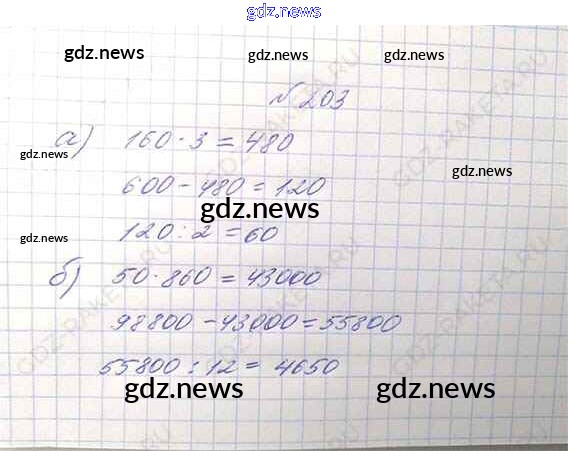 gdz.news
gdz.news gdz.news gdz.news
№ 203
а) 160 · 3 = 480
gdz.news
600 - 480 = 120
gdz.news
gdz.news
120 : 2 = 60
gdz.news
б) 50 · 860 = 43000
98800 - 43000 = 55800
55800 : 12 = 4650
gdz.news gdz.news
GDZ-RAKETA.RU